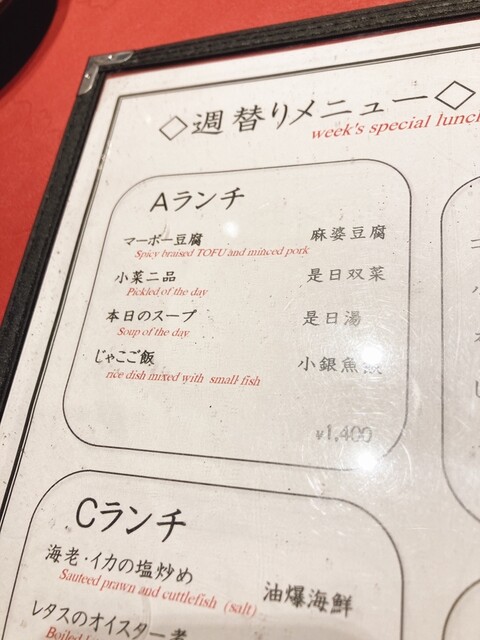 ◇週替りメニュー◇
week's special lunch
Aランチ
マーボー豆腐 麻婆豆腐
Spicy braised TOFU and minced pork
小菜二品 是日双菜
Pickled of the day
本日のスープ 是日湯
Soup of the day
じゃこご飯 小銀魚
rice dish mixed with small fish
¥1,400
Cランチ
海老・イカの塩炒め 油爆海鮮
Sauteed prawn and cuttlefish (salt)
レタスのオイスター煮
Boiled